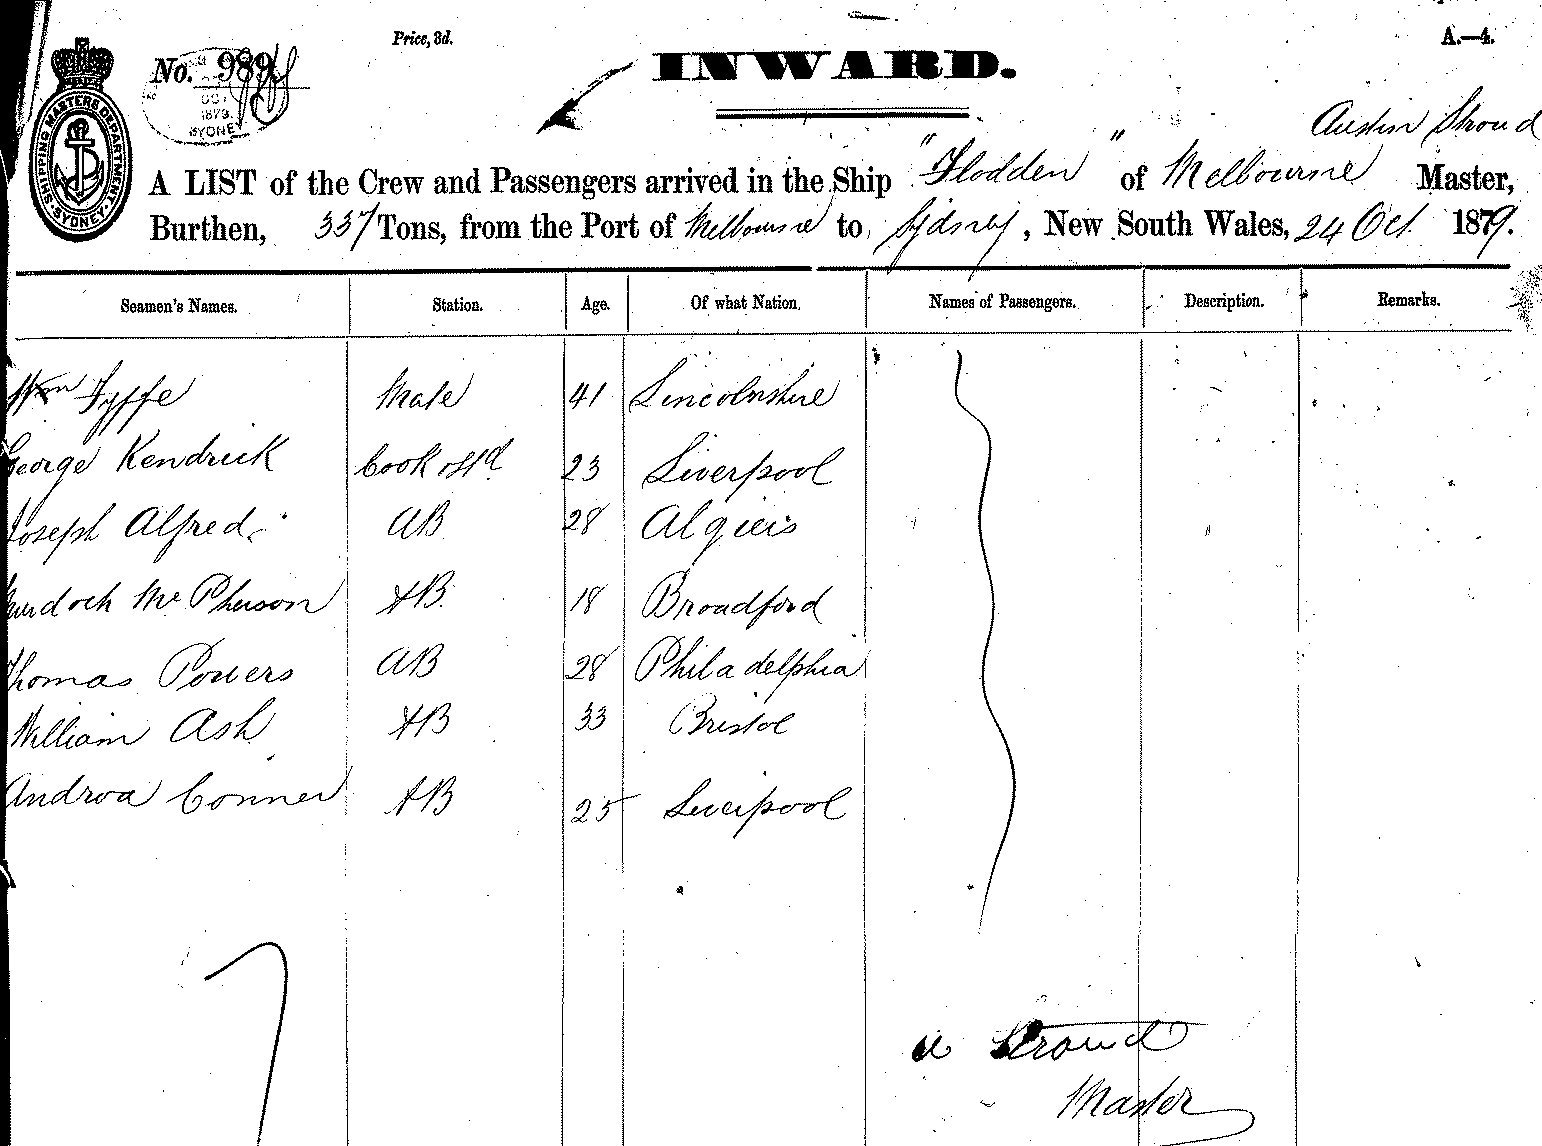 Price, 3d.
A.—4.
No. 989
INWARD.
SHIPPING MASTERS DEPARTMENT. SYDNEY.
OCT
1879
SYDNEY
Austin Stroud
A LIST of the Crew and Passengers arrived in the Ship "Flodden" of Melbourne Master,
Burthen, 337 Tons, from the Port of Melbourne to Sydney, New South Wales, 24 Oct 1879.
Seamen's Names. Station. Age. Of what Nation. Names of Passengers. Description. Remarks.
Wm Fyffe Mate 41 Lincolnshire
George Kendrick Cook & Std 23 Liverpool
Joseph Alfred AB 28 Algieis
Murdoch McPherson AB. 18 Broadford
Thomas Powers AB 28 Philadelphia
William Ash AB 33 Bristol
Androa Conner AB 25 Liverpool
7
A Stroud
Master